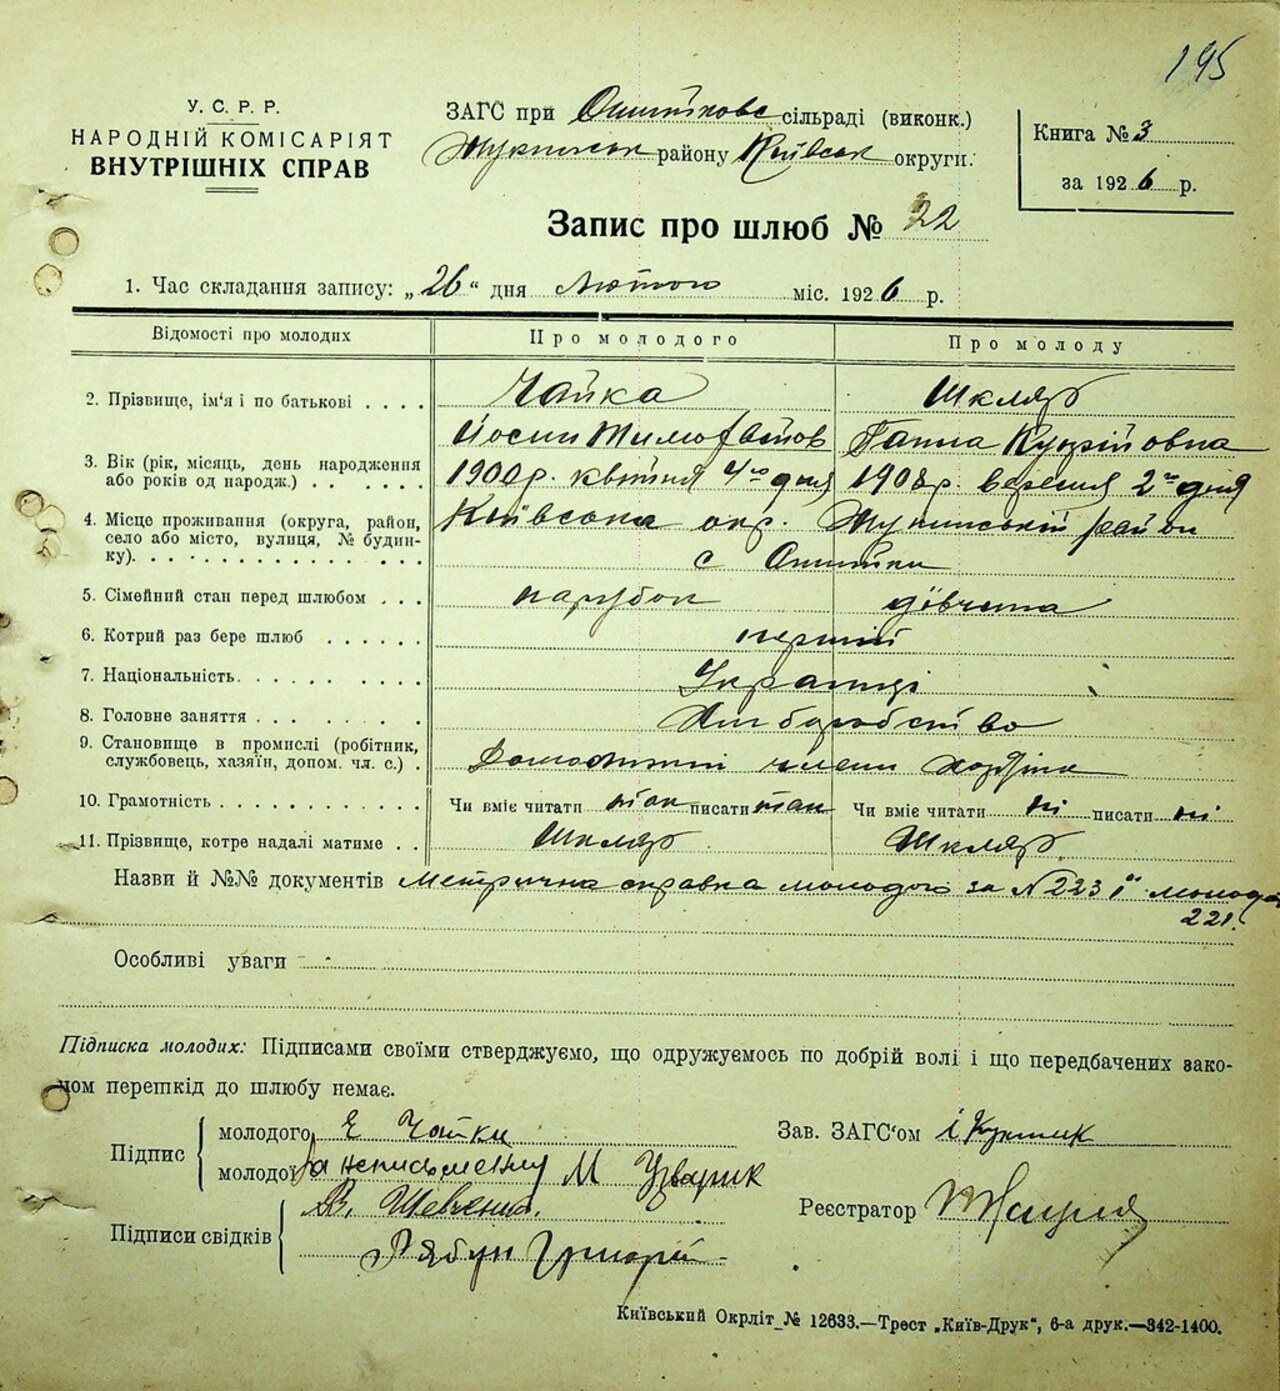 195
У. С. Р. Р.
НАРОДНІЙ КОМІСАРІЯТ
ВНУТРІШНІХ СПРАВ
ЗАГС при сільраді (виконк.)
району Київськ округи.
Книга № 3
за 1926 р.
Запис про шлюб № 22
1. Час складання запису: „26“ дня лютого міс. 1926 р.
Відомості про молодих Про молодого Про молоду
2. Прізвище, ім'я і по батькові . . . . Чайка Шкляр
Йосип Тимофеїов Ганна Купрійовна
3. Вік (рік, місяць, день народження або років од народж.) . . . . . . 1900р. квітня 4го дня 1908р. вересня 2го дня
4. Місце проживання (округа, район, село або місто, вулиця, № будинку). Київська окр. район
с Опитки
5. Сімейний стан перед шлюбом . . . парубок дівчина
6. Котрий раз бере шлюб . . . . . . перший
7. Національність. . . . . . . . . . Українці
8. Головне заняття . . . . . . . . Хліборобство
9. Становище в промислі (робітник, службовець, хазяїн, допом. чл. с.) . члени хазяїна
10. Грамотність . . . . . . . . . . . Чи вміє читати так писати так Чи вміє читати ні писати ні
11. Прізвище, котре надалі матиме . . Шкляр Шкляр
Назви й №№ документів Метрична справка молодого за N 223 і молодої
221.
Особливі уваги -
Підписка молодих: Підписами своїми стверджуємо, що одружуємось по добрій волі і що передбачених зако-
ном перешкід до шлюбу немає.
Підпис
молодого Чайка
молодої за неписьменну М Узварик
Зав. ЗАГС'ом
Підписи свідків
В. Шевченко.
Рябун Григорій
Реєстратор
Київський Окрліт № 12633.—Трест „Київ-Друк“, 6-а друк.—342-1400.